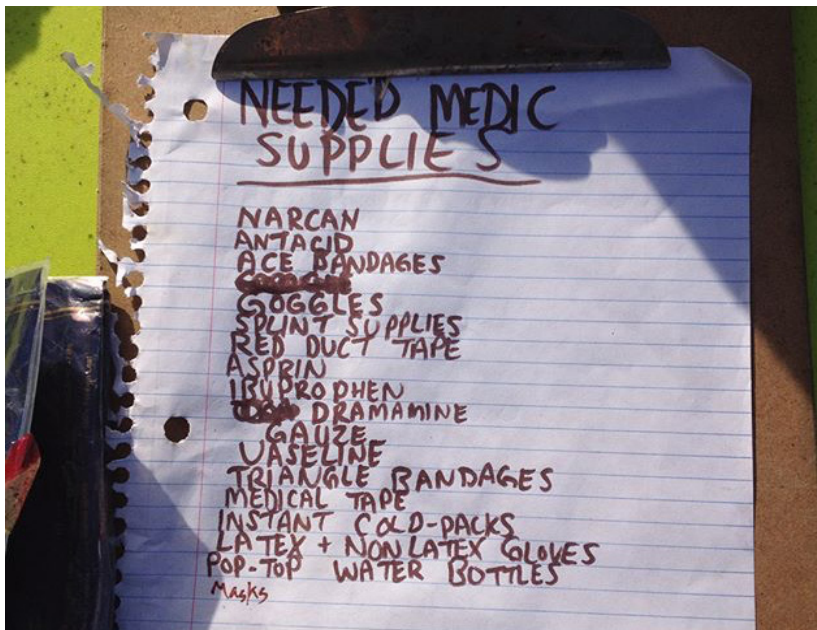 NEEDED MEDIC
SUPPLIES
NARCAN
ANTACID
ACE BANDAGES
GOGGLES
SPLINT SUPPLIES
RED DUCT TAPE
ASPRIN
IBUPROPHEN
DRAMAMINE
GAUZE
VASELINE
TRIANGLE BANDAGES
MEDICAL TAPE
INSTANT COLD-PACKS
LATEX + NON LATEX GLOVES
POP-TOP WATER BOTTLES
Masks